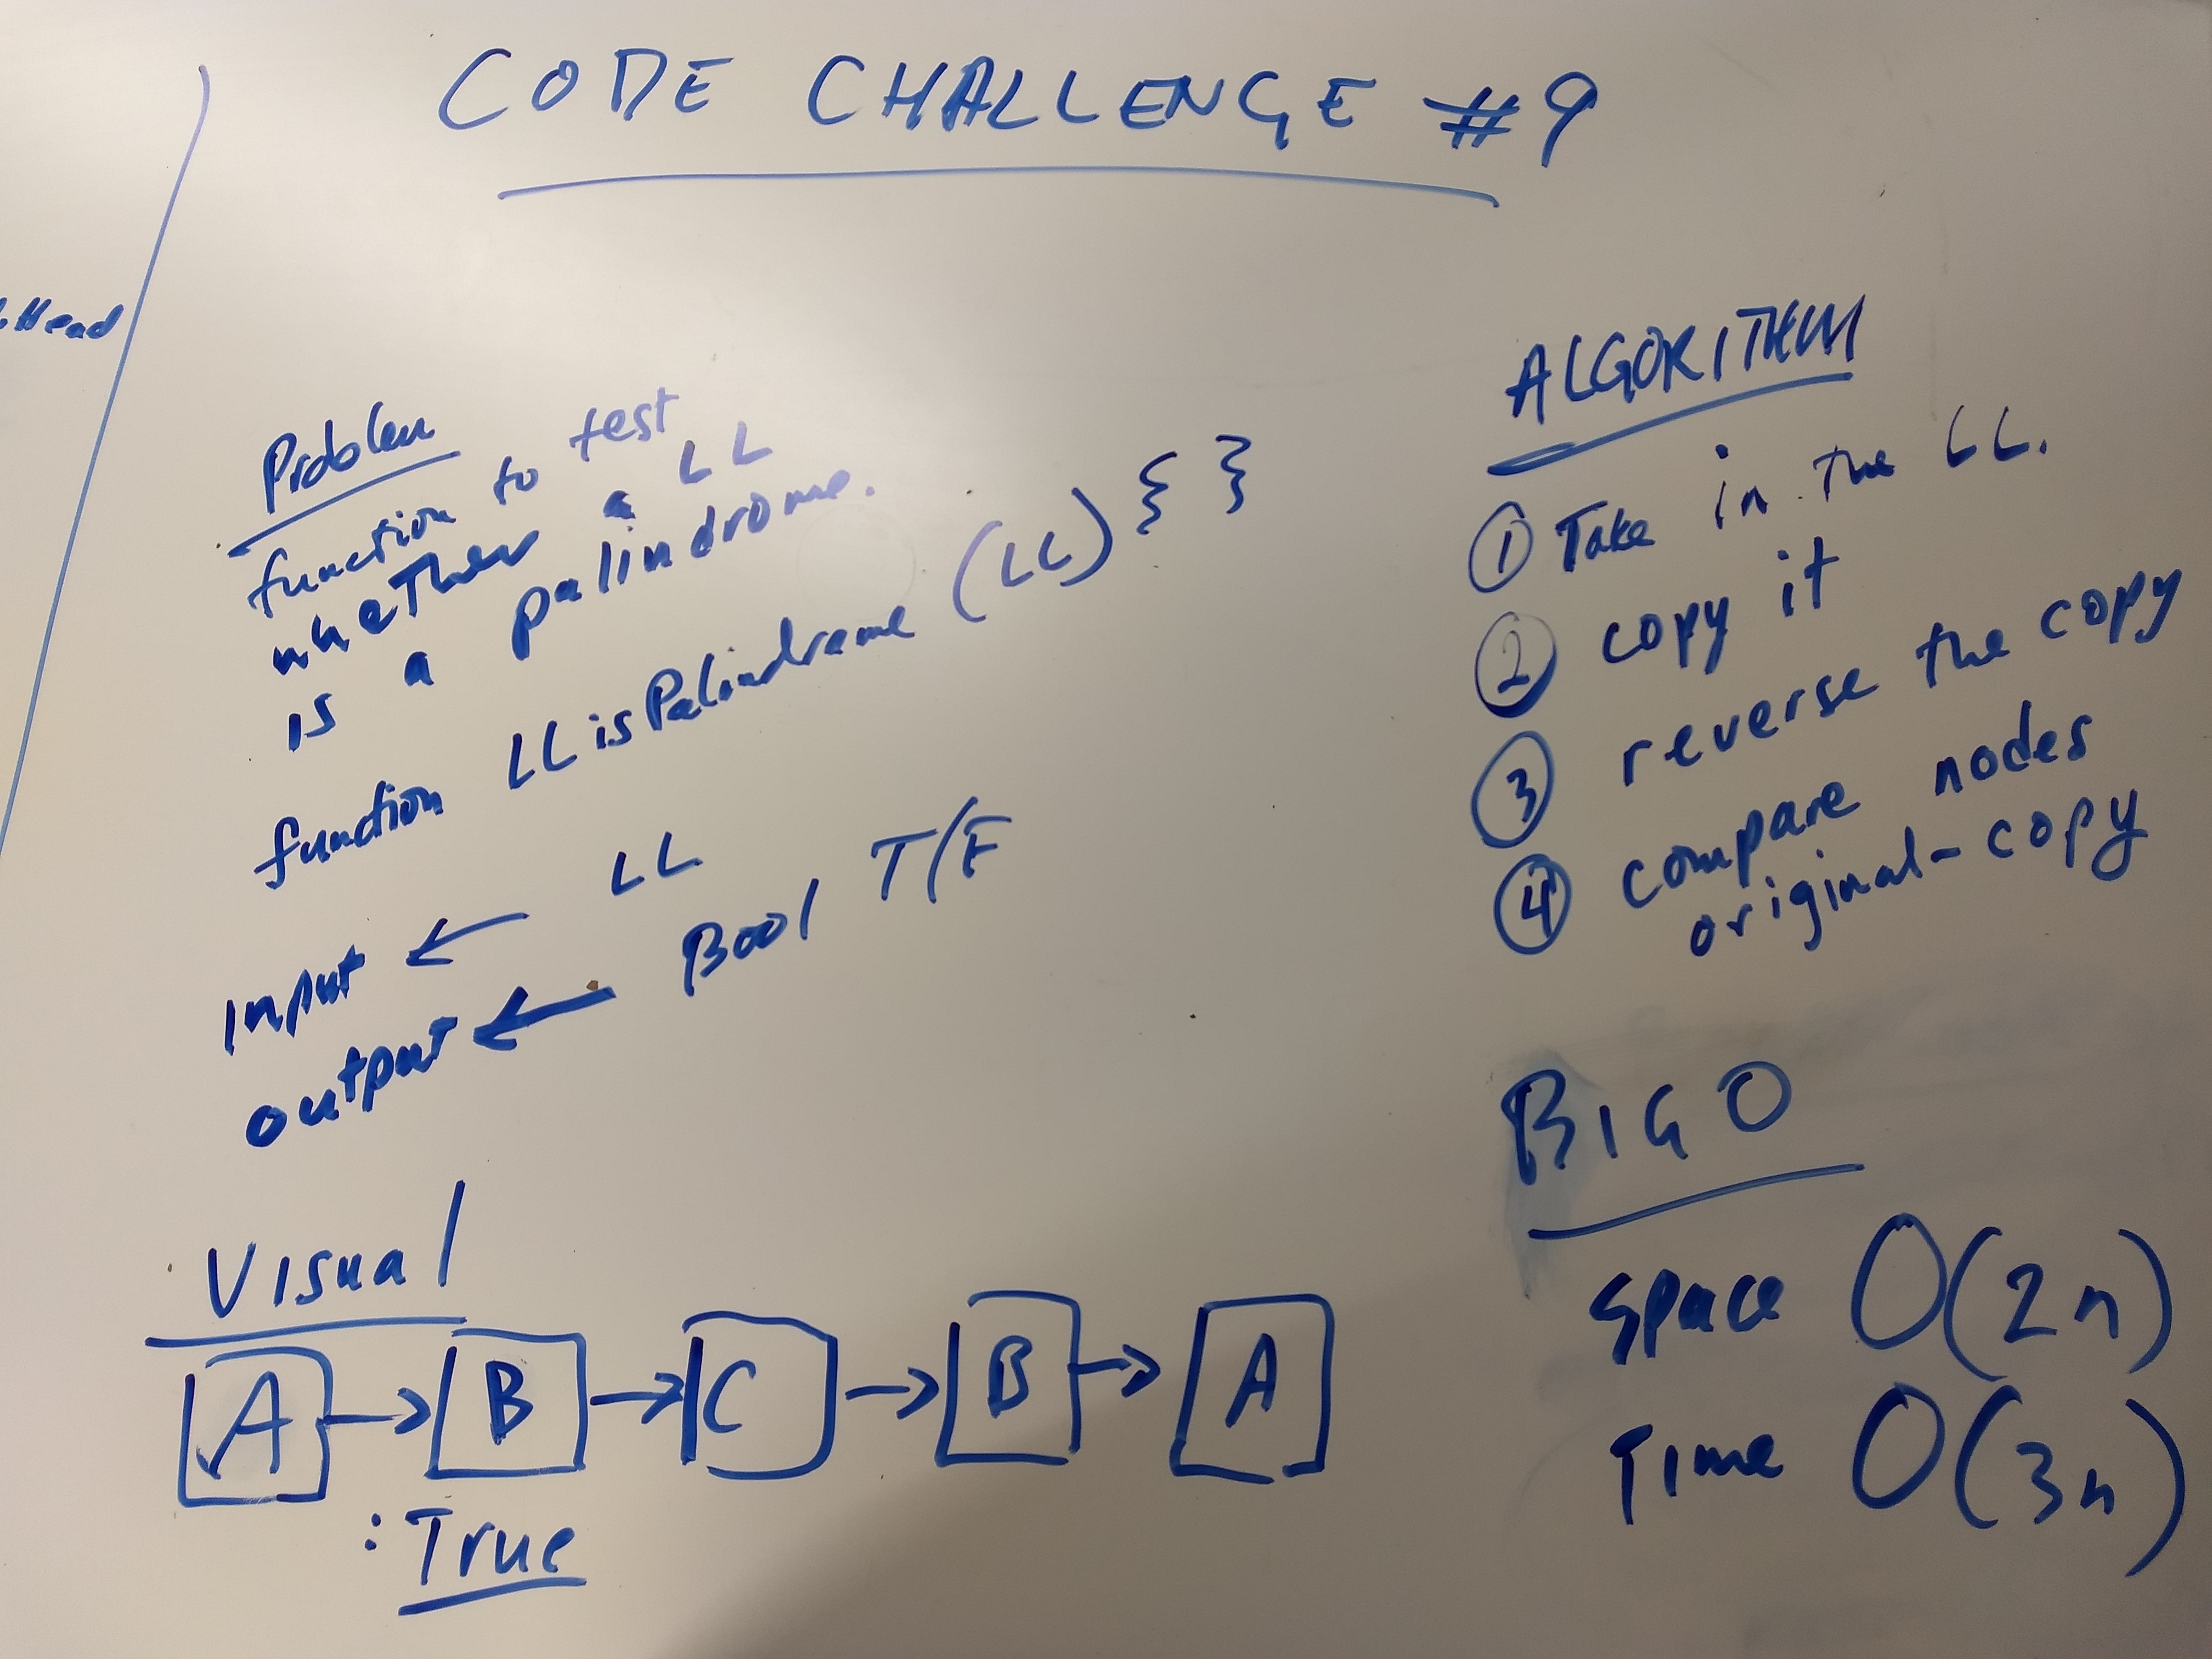 CODE CHALLENGE #9
.Head
Problem
function to test
whether a LL
is a palindrome.
function LLisPalindrome (LL) { }
Input ← LL
output ← Bool T/F
Visual
A → B → C → B → A
: True
ALGORITHM
① Take in the LL.
② copy it
③ reverse the copy
④ compare nodes
original-copy
BIG O
space O(2n)
Time O(3n)